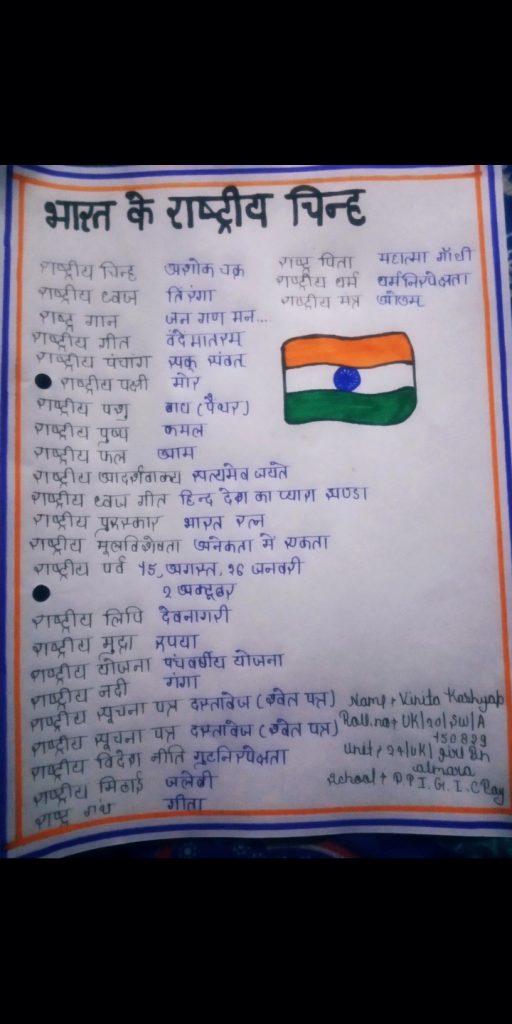 भारत के राष्ट्रीय चिन्ह
राष्ट्रीय चिन्ह अशोक चक्र
राष्ट्रीय ध्वज तिरंगा
राष्ट्र गान जन गण मन...
राष्ट्रीय गीत वंदेमातरम
राष्ट्रीय पंचांग शक संवत
राष्ट्रीय पक्षी मोर
राष्ट्रीय पशु बाघ (पैंथर)
राष्ट्रीय पुष्प कमल
राष्ट्रीय फल आम
राष्ट्रीय आदर्शवाक्य सत्यमेव जयते
राष्ट्रीय ध्वज गीत हिन्द देश का प्यारा झण्डा
राष्ट्रीय पुरस्कार भारत रत्न
राष्ट्रीय मूलविशेषता अनेकता में एकता
राष्ट्रीय पर्व 15, अगस्त, 26 जनवरी
2 अक्टूबर
राष्ट्रीय लिपि देवनागरी
राष्ट्रीय मुद्रा रुपया
राष्ट्रीय योजना पंचवर्षीय योजना
राष्ट्रीय नदी गंगा
राष्ट्रीय सूचना पत्र दस्तावेज (श्वेत पत्र)
राष्ट्रीय सूचना पत्र दस्तावेज (श्वेत पत्र)
राष्ट्रीय विदेश नीति गुटनिरपेक्षता
राष्ट्रीय मिठाई जलेबी
राष्ट्र ग्रंथ गीता
राष्ट्र पिता महात्मा गाँधी
राष्ट्रीय धर्म धर्मनिरपेक्षता
राष्ट्रीय मंत्र ओउम
Name + Vinita Kashyap
Roll.no+ UK/20/SW/A
150829
Unit + 24/UK/ girl Bn
almora
School + P.P.I.G.I.C